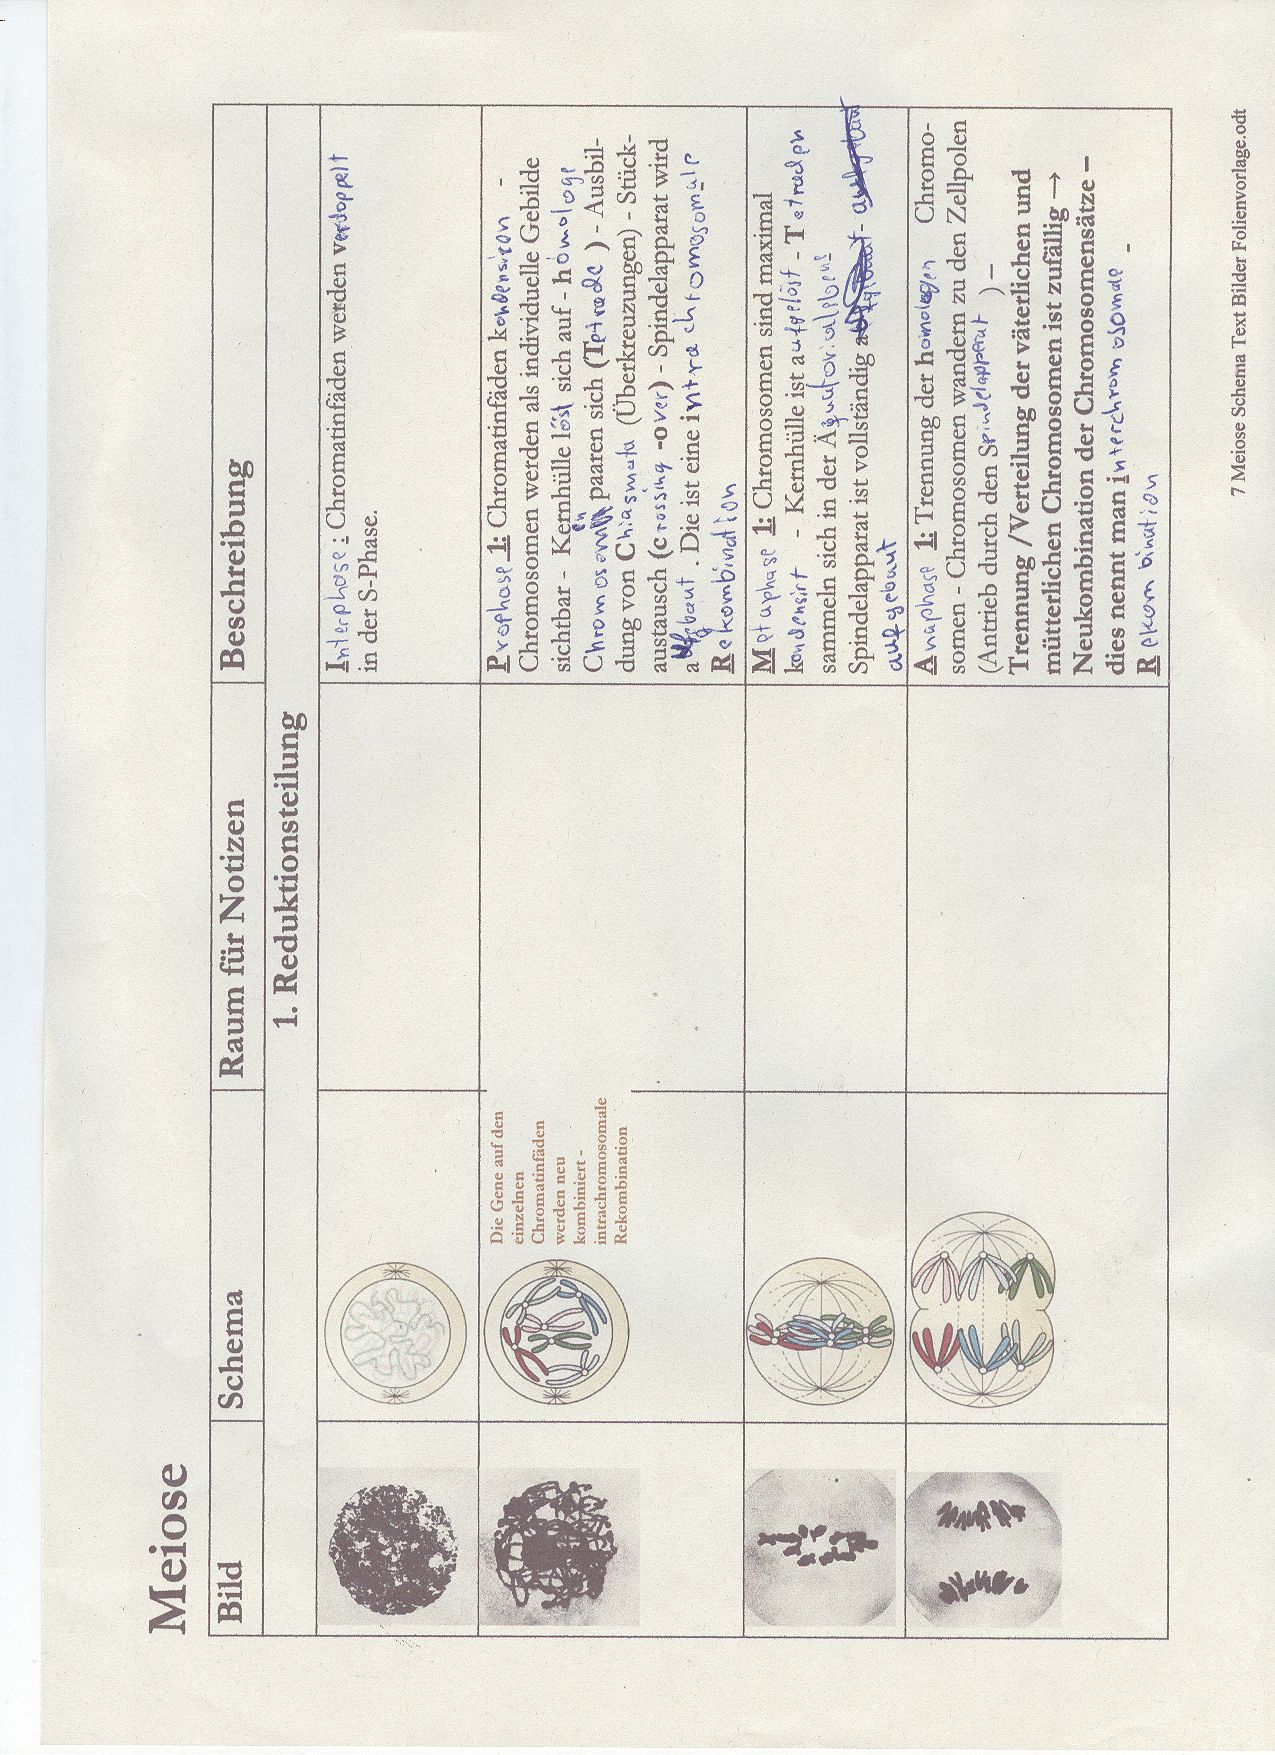 Meiose
Bild
Schema
Raum für Notizen
Beschreibung
1. Reduktionsteilung
Interphase : Chromatinfäden werden verdoppelt
in der S-Phase.
Die Gene auf den
einzelnen
Chromatinfäden
werden neu
kombiniert -
intrachromosomale
Rekombination
Prophase 1: Chromatinfäden kondensiren -
Chromosomen werden als individuelle Gebilde
sichtbar - Kernhülle löst sich auf - homologe
Chromosomen paaren sich (Tetrade ) - Ausbil-
dung von Chiasmata (Überkreuzungen) - Stück-
austausch (crossing -over) - Spindelapparat wird
aufgebaut . Die ist eine intrachromosomale
Rekombination
Metaphase 1: Chromosomen sind maximal
kondensirt - Kernhülle ist aufgelöst - Tetraden
sammeln sich in der Äquatorialebene
Spindelapparat ist vollständig
aufgebaut
Anaphase 1: Trennung der homologen Chromo-
somen - Chromosomen wandern zu den Zellpolen
(Antrieb durch den Spindelapparat ) –
Trennung /Verteilung der väterlichen und
mütterlichen Chromosomen ist zufällig →
Neukombination der Chromosomensätze –
dies nennt man interchromosomale -
Rekombination
7 Meiose Schema Text Bilder Folienvorlage.odt